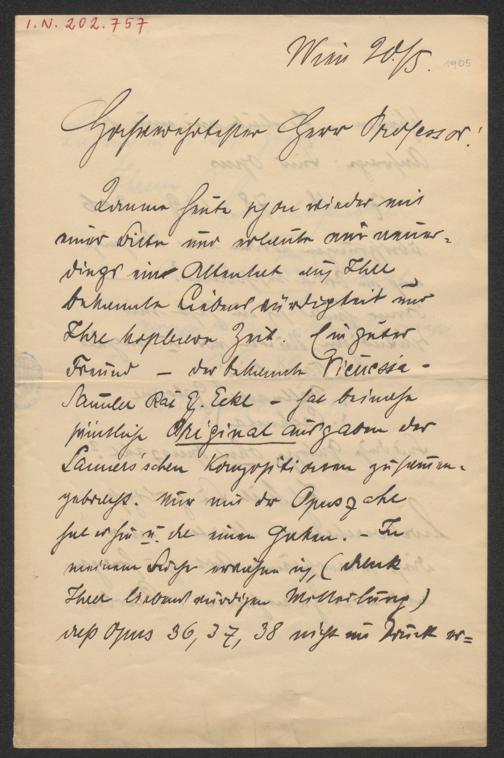 I.N. 202.757
Wien 20./5. 1905
Hochverehrtester Herr Professor!
Komme heute schon wieder mit
einer Bitte und erlaube mir neuer=
dings ein Attentat auf Ihre
bekannte Liebenswürdigkeit und
Ihre kostbare Zeit. Ein guter
Freund – der bekannte Viennensia-
Sammler Rat E. Eckl – hat beinahe
sämtliche Originalausgaben der
Lanner'schen Kompositionen zusammen-
gebracht. Nur mit der Opuszahl
hat es hie u. da einen Haken. – In
meinem Buche erwähne ich, (dank
Ihrer liebenswürdigen Mitteilung)
daß Opus 36, 37, 38 nicht im Druck er=